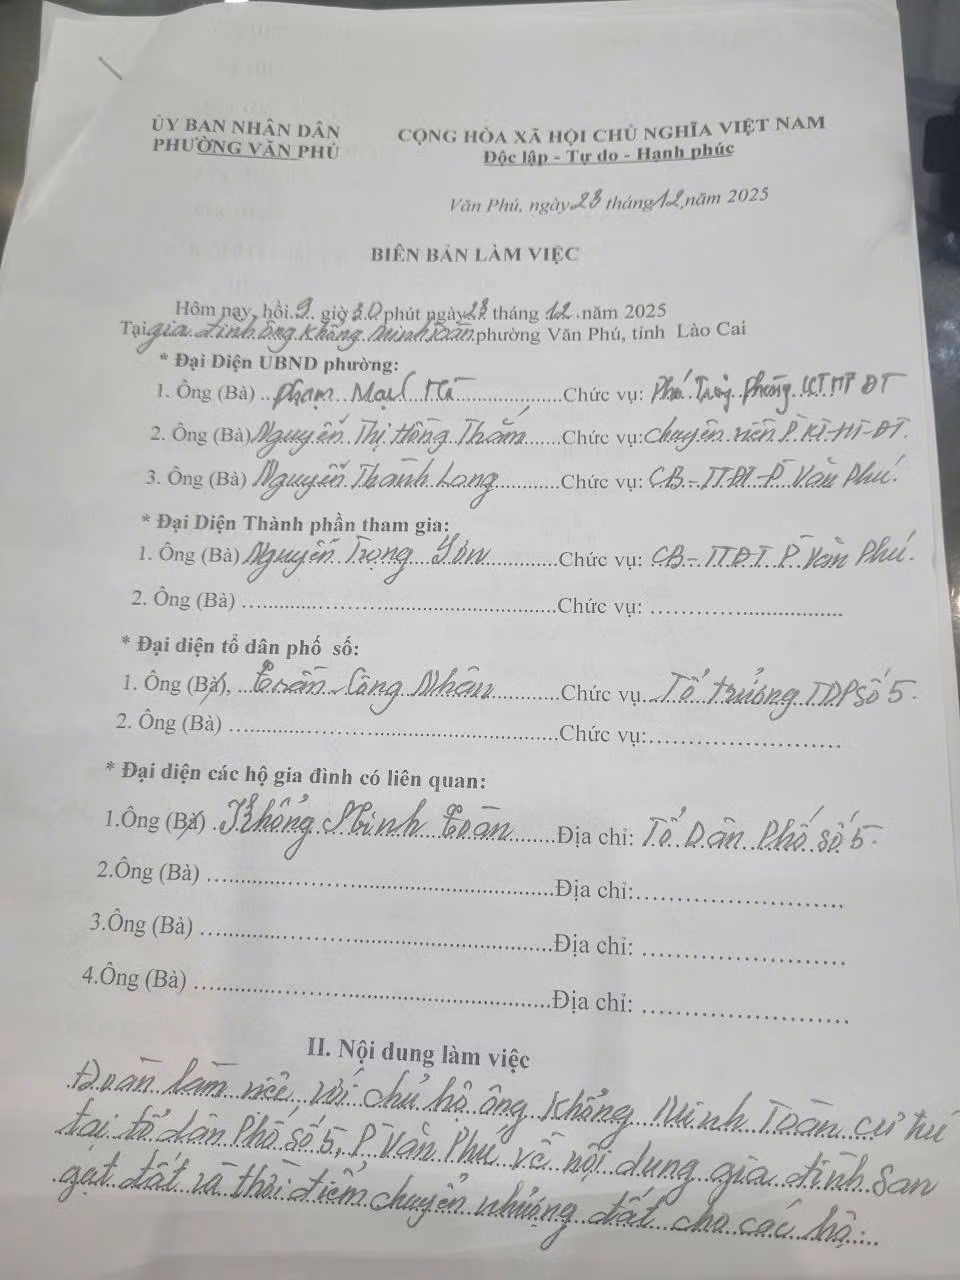 ỦY BAN NHÂN DÂN
PHƯỜNG VĂN PHÚ
CỘNG HÒA XÃ HỘI CHỦ NGHĨA VIỆT NAM
Độc lập - Tự do - Hạnh phúc
Văn Phú, ngày 23 tháng 12 năm 2025
BIÊN BẢN LÀM VIỆC
Hôm nay, hồi 9 giờ 30 phút ngày 23 tháng 12 năm 2025
Tại gia đình ông Khổng Minh Toàn phường Văn Phú, tỉnh Lào Cai
* Đại Diện UBND phường:
1. Ông (Bà) Phạm Mạnh Hà Chức vụ: Phó Trưởng phòng KTHTĐT
2. Ông (Bà) Nguyễn Thị Hồng Thắm Chức vụ: Chuyên viên P. KT-HT-ĐT.
3. Ông (Bà) Nguyễn Thành Long Chức vụ: CB-TTĐT-P Văn Phú.
* Đại Diện Thành phần tham gia:
1. Ông (Bà) Nguyễn Trọng Chức vụ: CB-TTĐT P Văn Phú.
2. Ông (Bà) Chức vụ:
* Đại diện tổ dân phố số:
1. Ông (Bà), Trần Công Nhân Chức vụ. Tổ trưởng TDP số 5.
2. Ông (Bà) Chức vụ:
* Đại diện các hộ gia đình có liên quan:
1.Ông (Bà) Khổng Minh Toàn Địa chỉ: Tổ Dân Phố số 5.
2.Ông (Bà) Địa chỉ:
3.Ông (Bà) Địa chỉ:
4.Ông (Bà) Địa chỉ:
II. Nội dung làm việc
Đoàn làm việc với chủ hộ ông Khổng Minh Toàn cư trú
tại tổ dân Phố số 5, P Văn Phú về nội dung gia đình san
gạt đất và thời điểm chuyển nhượng đất cho các hộ.